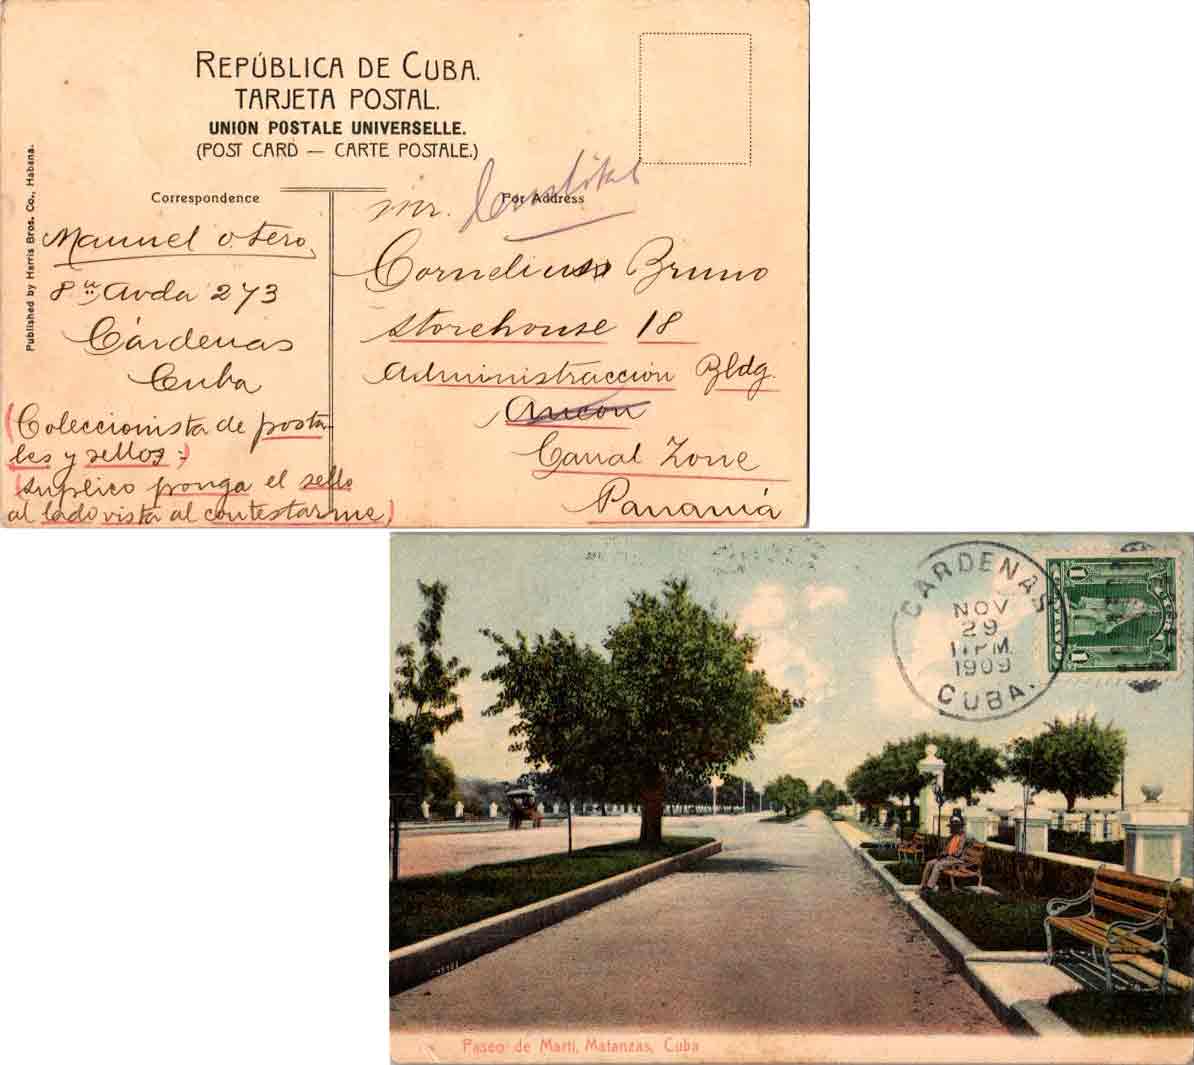 REPÚBLICA DE CUBA.
TARJETA POSTAL.
UNION POSTALE UNIVERSELLE.
(POST CARD — CARTE POSTALE.)
Published by Harris Bros. Co., Habana.
Correspondence
Manuel Otero,
8ª Avda 273
Cárdenas
Cuba
(Coleccionista de posta-
les y sellos;)
(Suplico ponga el sello
al lado vista al contestarme)
For Address
Mr.
Cornelius Bruno
Storehouse 18
Administraccion Bldg.
Ancon
Canal Zone
Panamá
CARDENAS
NOV
29
11 PM.
1909
CUBA.
1 1
Paseo de Marti, Matanzas, Cuba